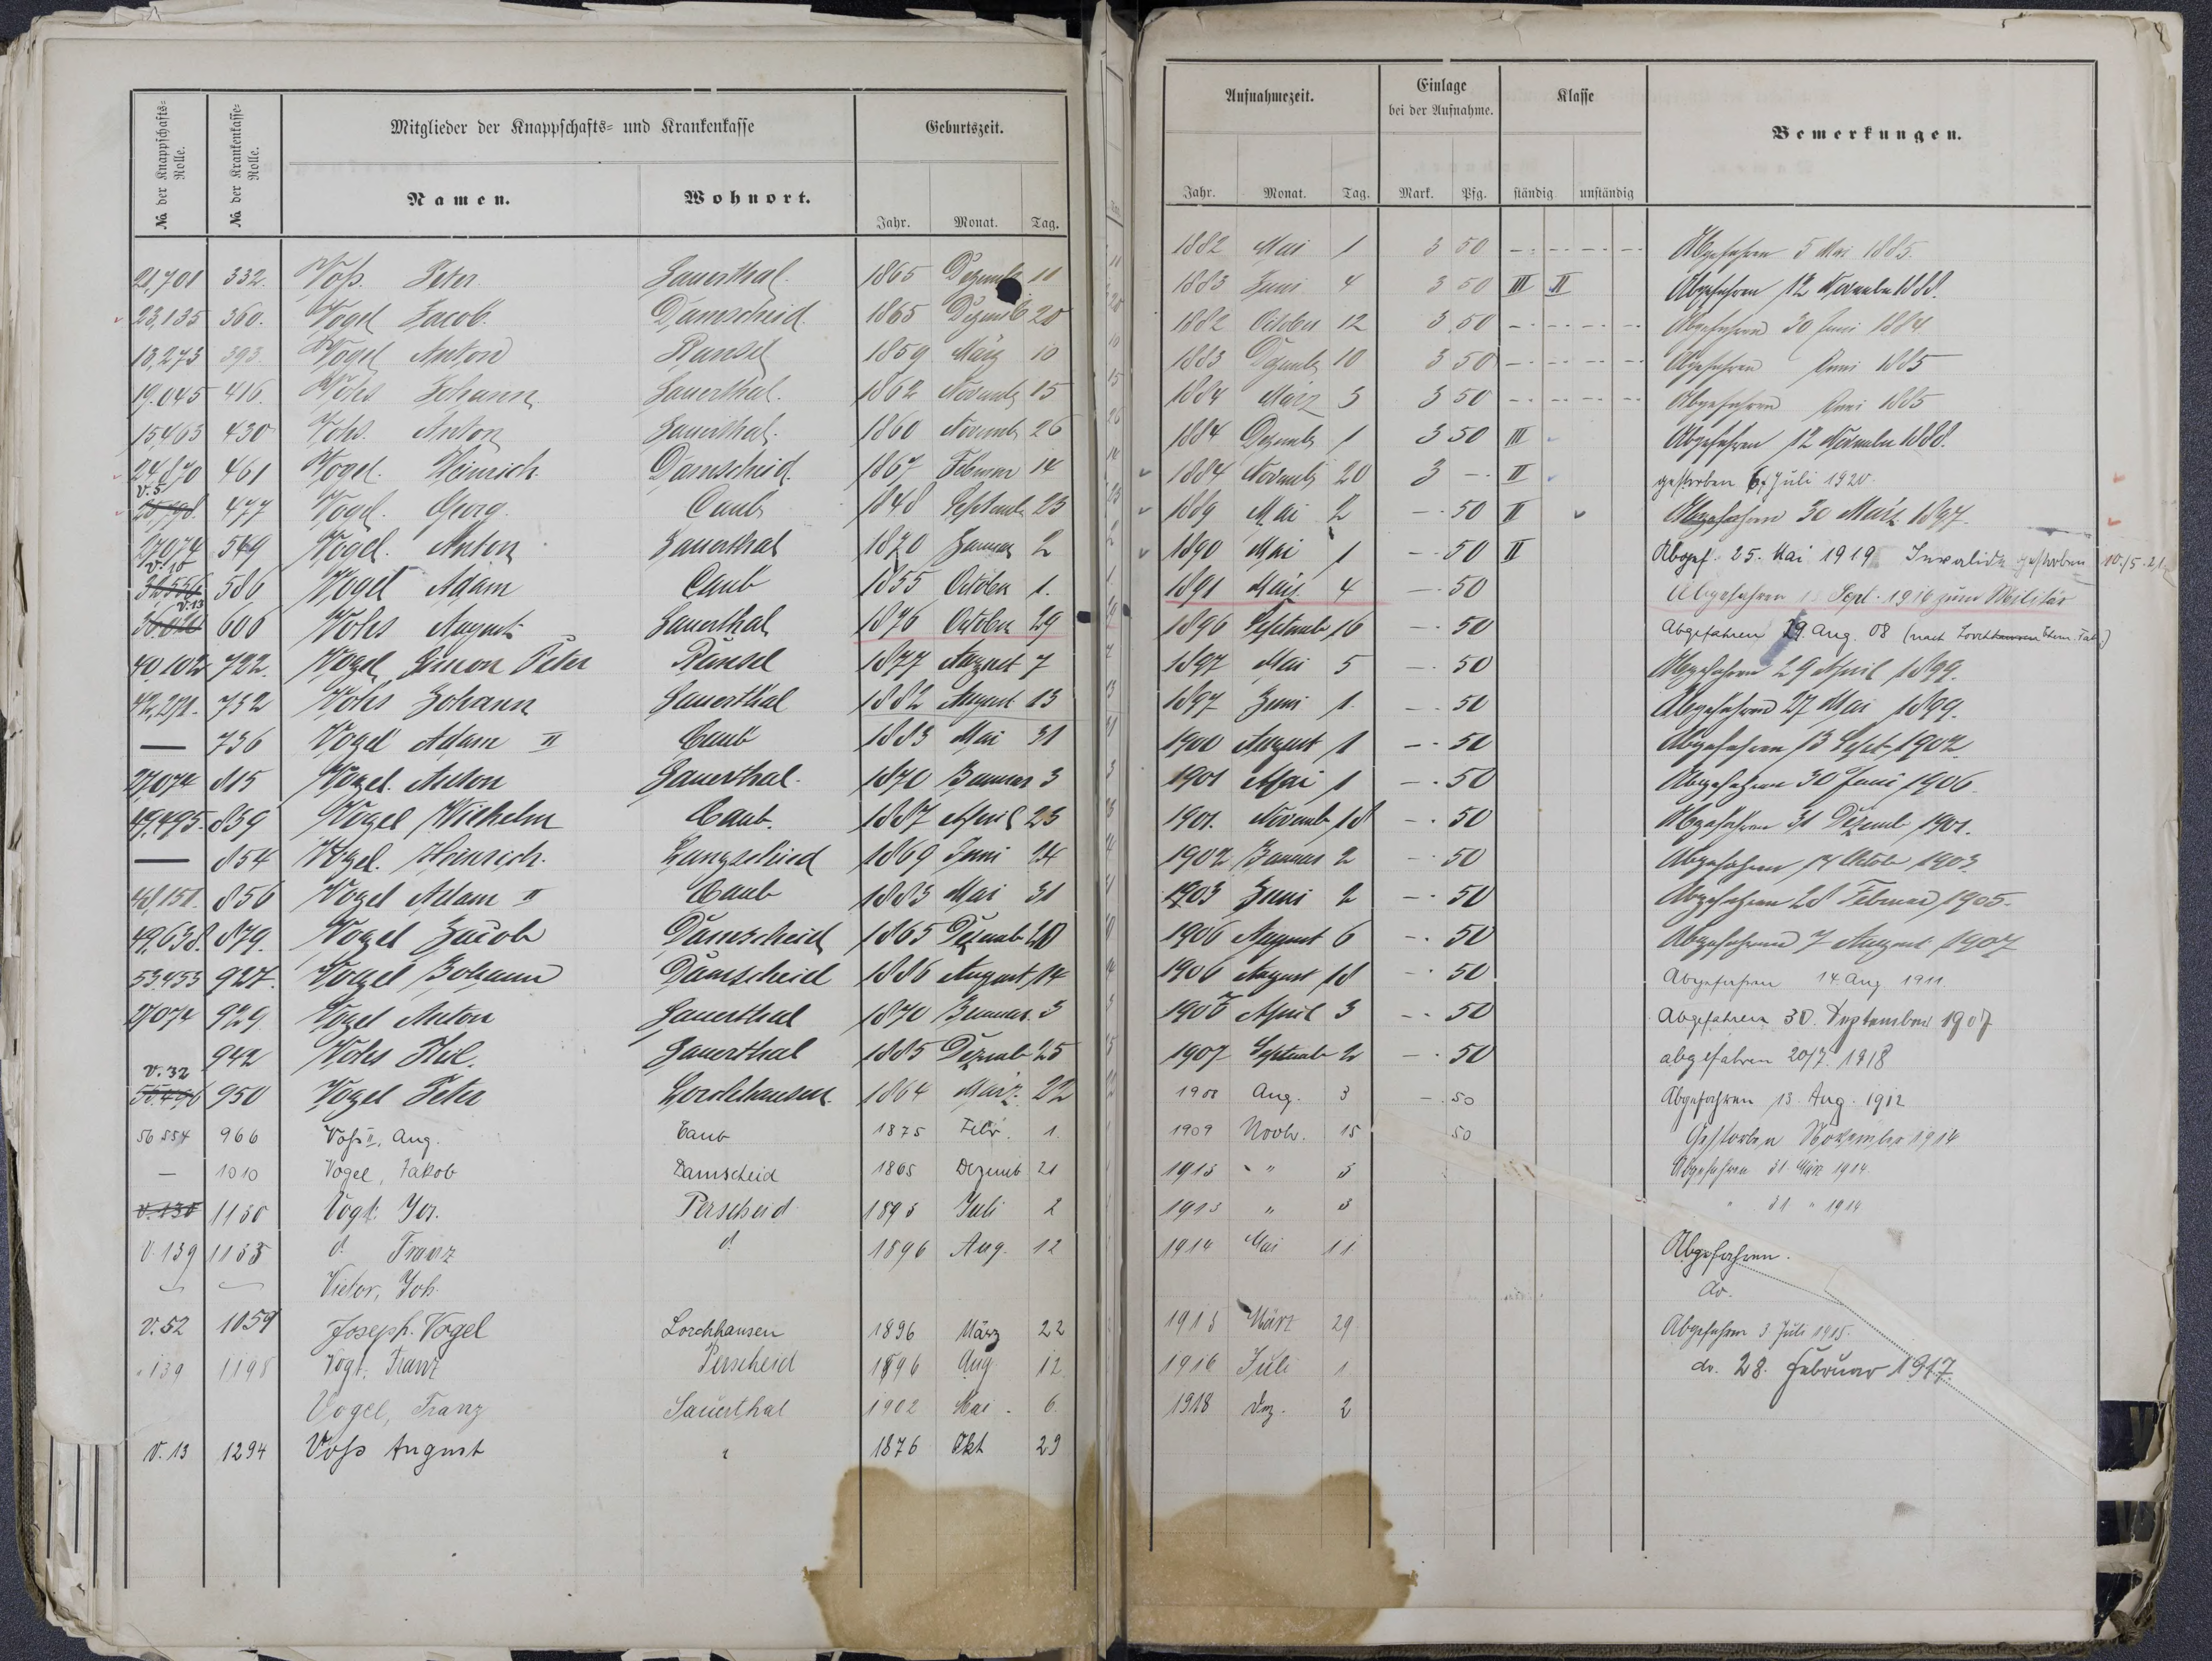 № der Knappschafts-Rolle.
№ der Krankenkasse-Rolle.
Mitglieder der Knappschafts- und Krankenkasse
Namen. Wohnort.
Geburtszeit.
Jahr. Monat. Tag.
21,701 332. Voß. Peter. Sauerthal. 1865 Dezemb 11
23,135 360. Vogel Jacob. Damscheid. 1865 Dezemb 20
13,273 393. Vogel Anton Ransel 1859 März 10
19.045 416. Vohs Johann Sauerthal. 1862 Novemb 15
15463 430 Vohs. Anton Sauerthal. 1860 Novemb 26
24,870 461 Vogel. Heinrich. Damscheid. 1867 Februar 14
V.5. 477 Vogel. Georg. Caub 1848 Septemb 23
27074 549 Vogel. Anton Sauerthal 1870 Januar 2
V.10 32556 586 Vogel Adam Caub 1855 October 1.
V.13 606 Vohs August Sauerthal 1876 October 29
40,102 722. Vogel, Simon Peter Ransel 1877 August 7
42,271. 732 Vohs Johann Sauerthal 1882 August 13
— 736 Vogel Adam II Caub 1883 Mai 31
27,074 815 Vogel. Anton Sauerthal. 1870 Januar 3
47,495. 839 Vogel Wilhelm Caub. 1887 April 23
— 854 Vogel. Heinrich. Langscheid 1869 Juni 24
48,151. 856 Vogel Adam II Caub 1883 Mai 31
49,638. 879. Vogel Jacob Damscheid 1865 Dezemb 20
53.453 927. Vogel Johann Damscheid 1886 August 14
27074 929 Vogel Anton Sauerthal 1870 Januar. 3
942 Vohs Sauerthal 1885 Dezemb 25
V.32 950 Vogel Peter Lorchhausen. 1864 März 22
56 554 966 Voß II, Aug. Caub 1875 Febr. 1.
— 1010 Vogel, Jakob Damscheid 1865 Dezemb 21
V.138 1130 Vogt. Jos. Perscheid 1895 Juli 2
V.139 1133 d! Franz d! 1896 Aug. 12
Victor, Joh.
V.52 1059 Joseph. Vogel Lorchhausen 1896 März 22
" 139 1198 Vogt, Franz Perscheid 1896 Aug 12
Vogel, Franz Sauerthal 1902 Mai. 6.
V.13 1294 Voß August " 1876 Okt 29
Aufnahmezeit.
Einlage bei der Aufnahme.
Klasse
Bemerkungen.
Jahr. Monat. Tag. Mark. Pfg. ständig unständig
1882 Mai 1 3 50 Abgefahren 5 Mai 1885.
1883 Juni 4 3 50 III II Abgefahren 12 November 1888.
1882 October 12 3 50 Abgefahren 30 Juni 1884
1883 Dezemb 10 3 50 Abgefahren Juni 1885
1884 März 3 3 50 Abgefahren Juni 1885
1884 Dezemb 1 3 50 III Abgefahren 12 November 1888.
1884 Novemb 20 3 — II gestorben 6. Juli 1920.
1889 Mai 2 — 50 II Abgefahren 30 März 1897.
1890 Mai 1 — 50 II Abgef. 25. Mai 1919 Invalide gestorben 10/5.21
1891 März 4 — 50 Abgefahren Sept. 1916 zum Militär
1896 Septemb 16 — 50 Abgefahren 29. Aug. 08 (nach Lorchhausen Chem. Fab.)
1897 Mai 5 — 50 Abgefahren 29 April 1899.
1897 Juni 1. — 50 Abgefahren 27 Mai 1899.
1900 August 1 — 50 Abgefahren 13 Sept. 1902
1901 Mai 1 — 50 Abgefahren 30 Juni 1906.
1901. Novemb 18 — 50 Abgefahren 31 Dezemb 1901.
1902 Januar 2 — 50 Abgefahren 14 Octob 1903
1903 Juni 2 — 50 Abgefahren 28 Februar 1905.
1906 August 6 — 50 Abgefahren 7 August 1907
1906 August 18 — 50 Abgefahren 14. Aug 1911.
1907 April 3 — 50 Abgefahren 30. September 1907
1907 Septemb 2 — 50 abgefahren 20/7. 1918
1908 Aug. 3 — 50 Abgefahren 13. Aug. 1912
1909 Novb. 15 50 Gestorben November 1914
1913 " 3 Abgefahren 31. März 1914
1913 " 3 " 31 " 1914
1914 Mai 11 Abgefahren.
do.
1915 März 29. Abgefahren 3. Juli 1915.
1916 Juli 1. do. 28. Februar 1917.
1918 Dez. 2